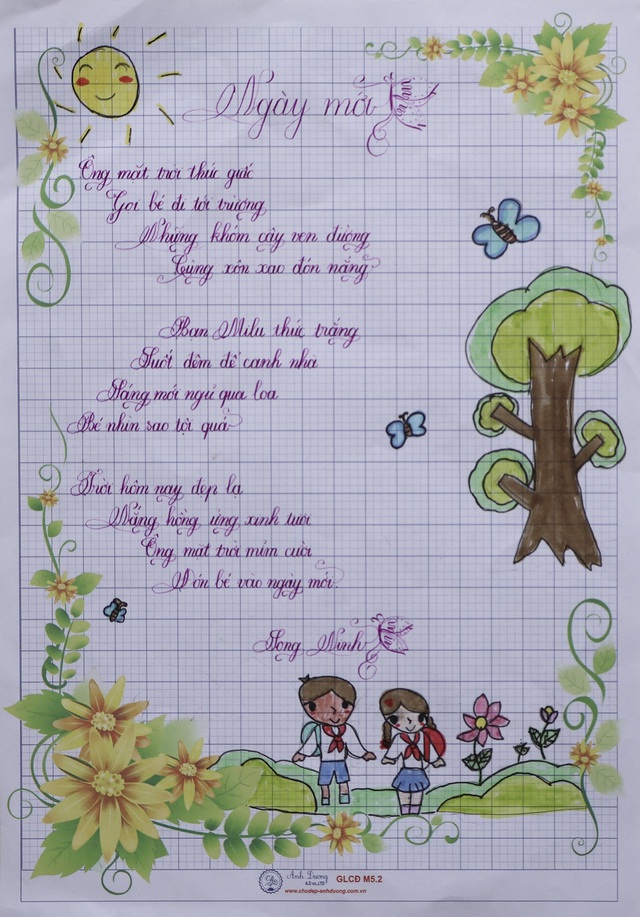 Ngày mới
Ông mặt trời thức giấc
Gọi bé đi tới trường
Những khóm cây ven đường
Cùng xôn xao đón nắng
Bạn Milu thức trắng
Suốt đêm để canh nhà
Sáng mới ngủ qua loa
Bé nhìn sao tội quá
Trời hôm nay đẹp lạ
Nắng hồng ửng xinh tươi
Ông mặt trời mỉm cười
Đón bé vào ngày mới
Song Ninh
Ánh Dương
A.D co.,LTD
GLCĐ M5.2
www.chudep-anhduong.com.vn